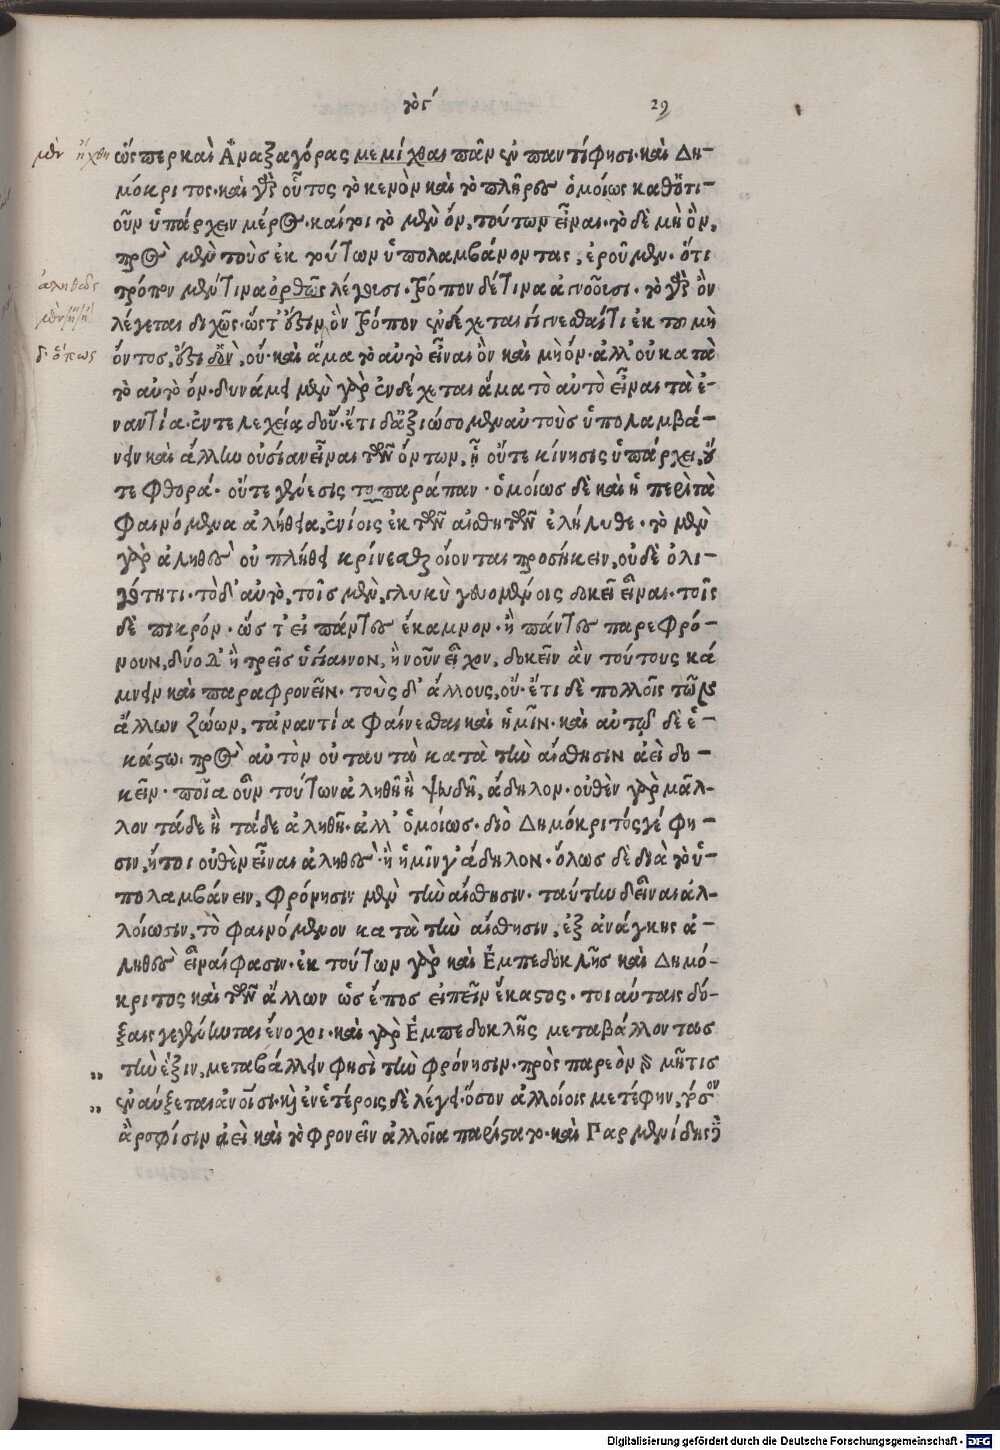 γος 29
μὲν ἤχθη ὥσπερ καὶ Ἀναξαγόρας μεμίχθαι πᾶν ἐν παντί φησι· καὶ Δη-
μόκριτος· καὶ γὰρ οὗτος τὸ κενὸν καὶ τὸ πλῆρες ὁμοίως καθότι-
οῦν ὑπάρχειν μέρος· καίτοι τὸ μὲν ὄν, τούτων εἶναι· τὸ δὲ μὴ ὄν,
πρὸς μὲν τοὺς ἐκ τούτων ὑπολαμβάνοντας, ἐροῦμεν· ὅτι
ἀληθῶς τρόπον μέν τινα ὀρθῶς λέγουσι· τρόπον δέ τινα ἀγνοοῦσι· τὸ γὰρ ὂν
λέγεται διχῶς· ὥστ' ἔστιν ὃν τρόπον ἐνδέχεται γίγνεσθαί τι ἐκ τοῦ μὴ
δ' ὅπως ὄντος, ἔστι δ' ὃν, οὔ· καὶ ἅμα τὸ αὐτὸ εἶναι ὂν καὶ μὴ ὄν· ἀλλ' οὐ κατὰ
τὸ αὐτὸ ὄν· δυνάμει μὲν γὰρ ἐνδέχεται ἅμα τὸ αὐτὸ εἶναι τὰ ἐ-
ναντία· ἐντελεχείᾳ δ' οὔ· ἔτι δ' ἀξιώσομεν αὐτοὺς ὑπολαμβά-
νειν καὶ ἄλλην οὐσίαν εἶναι τῶν ὄντων, ᾗ οὔτε κίνησις ὑπάρχει, οὔ
τε φθορά· οὔτε γένεσις το παράπαν· ὁμοίως δὲ καὶ ἡ περὶ τὰ
φαινόμενα ἀλήθεια, ἐνίοις ἐκ τῶν αἰσθητῶν ἐλήλυθε· τὸ μὲν
γὰρ ἀληθὲς οὐ πλήθει κρίνεσθαι οἴονται προσήκειν, οὐδὲ ὀλι-
γότητι· τὸ δ' αὐτὸ, τοῖς μὲν, γλυκὺ γευομένοις δοκεῖ εἶναι· τοῖς
δὲ πικρόν· ὥστ' εἰ πάντες ἔκαμνον· ἢ πάντες παρεφρό-
νουν, δύο δ' ἢ τρεῖς ὑγίαινον, ἢ νοῦν εἶχον, δοκεῖν ἂν τούτους κά
μνειν καὶ παραφρονεῖν· τοὺς δ' ἄλλους, οὔ· ἔτι δὲ πολλοῖς τῶν
ἄλλων ζώων, τἀναντία φαίνεσθαι καὶ ἡμῖν· καὶ αὐτῷ δὲ ἑ-
κάστῳ· πρὸς αὑτὸν οὐ ταυτὰ κατὰ τὴν αἴσθησιν ἀεὶ δο-
κεῖν· ποῖα οὖν τούτων ἀληθῆ ἢ ψευδῆ, ἄδηλον· οὐθὲν γὰρ μᾶλ-
λον τάδε ἢ τάδε ἀληθῆ· ἀλλ' ὁμοίως· διὸ Δημόκριτός γέ φη-
σιν, ἤτοι οὐθὲν εἶναι ἀληθὲς· ἢ ἡμῖν γ' ἄδηλον· ὅλως δὲ διὰ τὸ ὑ-
πολαμβάνειν, φρόνησιν μὲν τὴν αἴσθησιν· ταύτην δ' εἶναι ἀλ-
λοίωσιν, τὸ φαινόμενον κατὰ τὴν αἴσθησιν, ἐξ ἀνάγκης ἀ-
ληθὲς εἶναί φασιν· ἐκ τούτων γὰρ καὶ Ἐμπεδοκλῆς καὶ Δημό-
κριτος καὶ τῶν ἄλλων ὡς ἔπος εἰπεῖν ἕκαστος· τοιαύταις δό-
ξαις γεγένηνται ἔνοχοι· καὶ γὰρ Ἐμπεδοκλῆς μεταβάλλοντας
" τὴν ἕξιν, μεταβάλλειν φησὶ τὴν φρόνησιν· πρὸς παρεὸν μῆτις
" ἐναύξεται ἀνοῖσι· καὶ ἐν ἑτέροις δὲ λέγει· ὅσον ἀλλοίοις μετέφην, τόσον
ἂρ σφίσιν ἀεὶ καὶ τὸ φρονεῖν ἀλλοῖα παρίστατο· καὶ Παρμενίδης